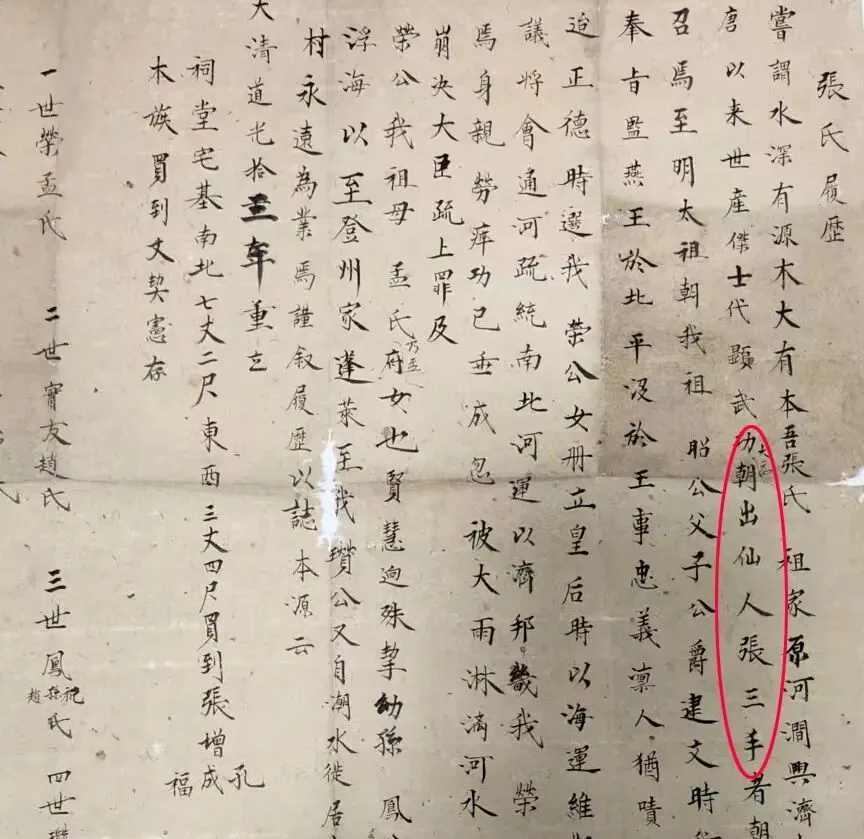 張氏履歷
嘗謂水深有源木大有本吾張氏祖家原河澗興濟
唐以来世産傑士代顯武功朝出仙人張三丰者朝
召焉至明太祖朝我祖 昭公父子公爵建文時
奉旨監燕王於北平没於王事忠義凛人猶嘖
迨正德時選我 榮公女册立皇后時以海運維
議將會通河疏統南北河運以濟邦畿我 榮
焉身親勞瘁功已垂成忽 被大雨淋漓河水
崩决大臣疏上罪及
榮公我祖母 孟氏乃孟府女也賢慧逈殊挈幼孫 鳳
浮海以至登州家蓬萊至我瓚公又自潮水徙居
村永遠為業焉謹叙履歷以誌本源云
大清道光拾三年重立
祠堂宅基南北七丈二尺東西三丈四尺買到張增
孔成福
本族買到文契憲存
一世榮孟氏 二世寳友趙氏 三世鳳 氏 四世